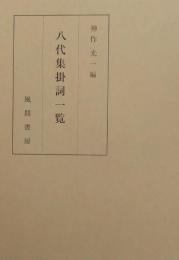 神作光一編
八代集掛詞一覧
風間書房